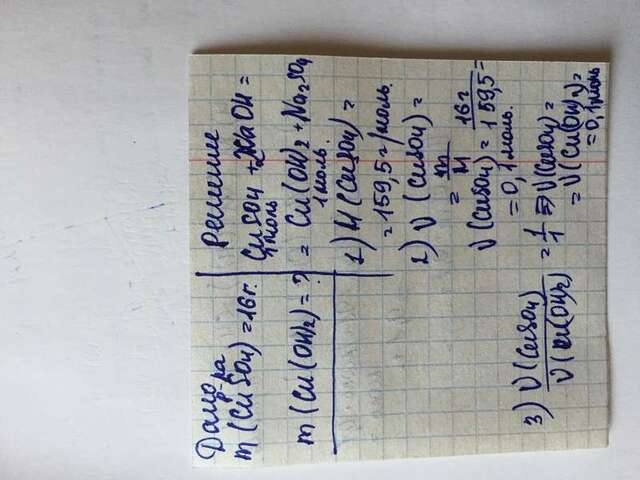 Дано
р-ра
m (CuSO4) = 16 г.
m (Cu(OH)2) = ?
Решение
CuSO4 + 2NaOH =
1 моль
= Cu(OH)2 + Na2SO4
1 моль.
1) M (CuSO4) =
= 159,5 г/моль.
2) ν (CuSO4) =
= m
M
ν (CuSO4) = 16г =
159,5
= 0,1 моль.
3) ν(CuSO4) = 1 => ν(CuSO4) =
ν(Cu(OH)2) 1
= ν(Cu(OH)2) =
= 0,1 моль